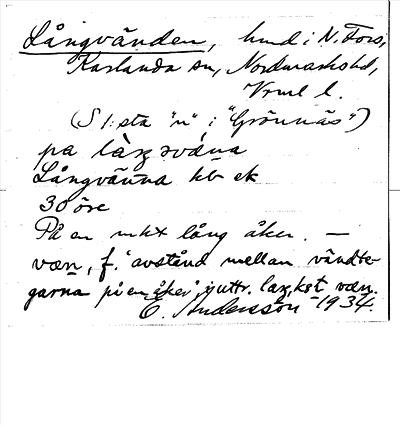 Långvänden, hmd i N. Fors,
Karlanda sn, Nordmarks hd,
Vrml l.
(S 1:sta "n" i "Grönnäs")
pa làŋ svǽna
Långvänna hb ek
30 öre
På en mkt lång åker. —
væn, f. "avstånd mellan vändte-
garna på en åker", i uttr. laŋ, kst væn.
E. Andersson 1934.